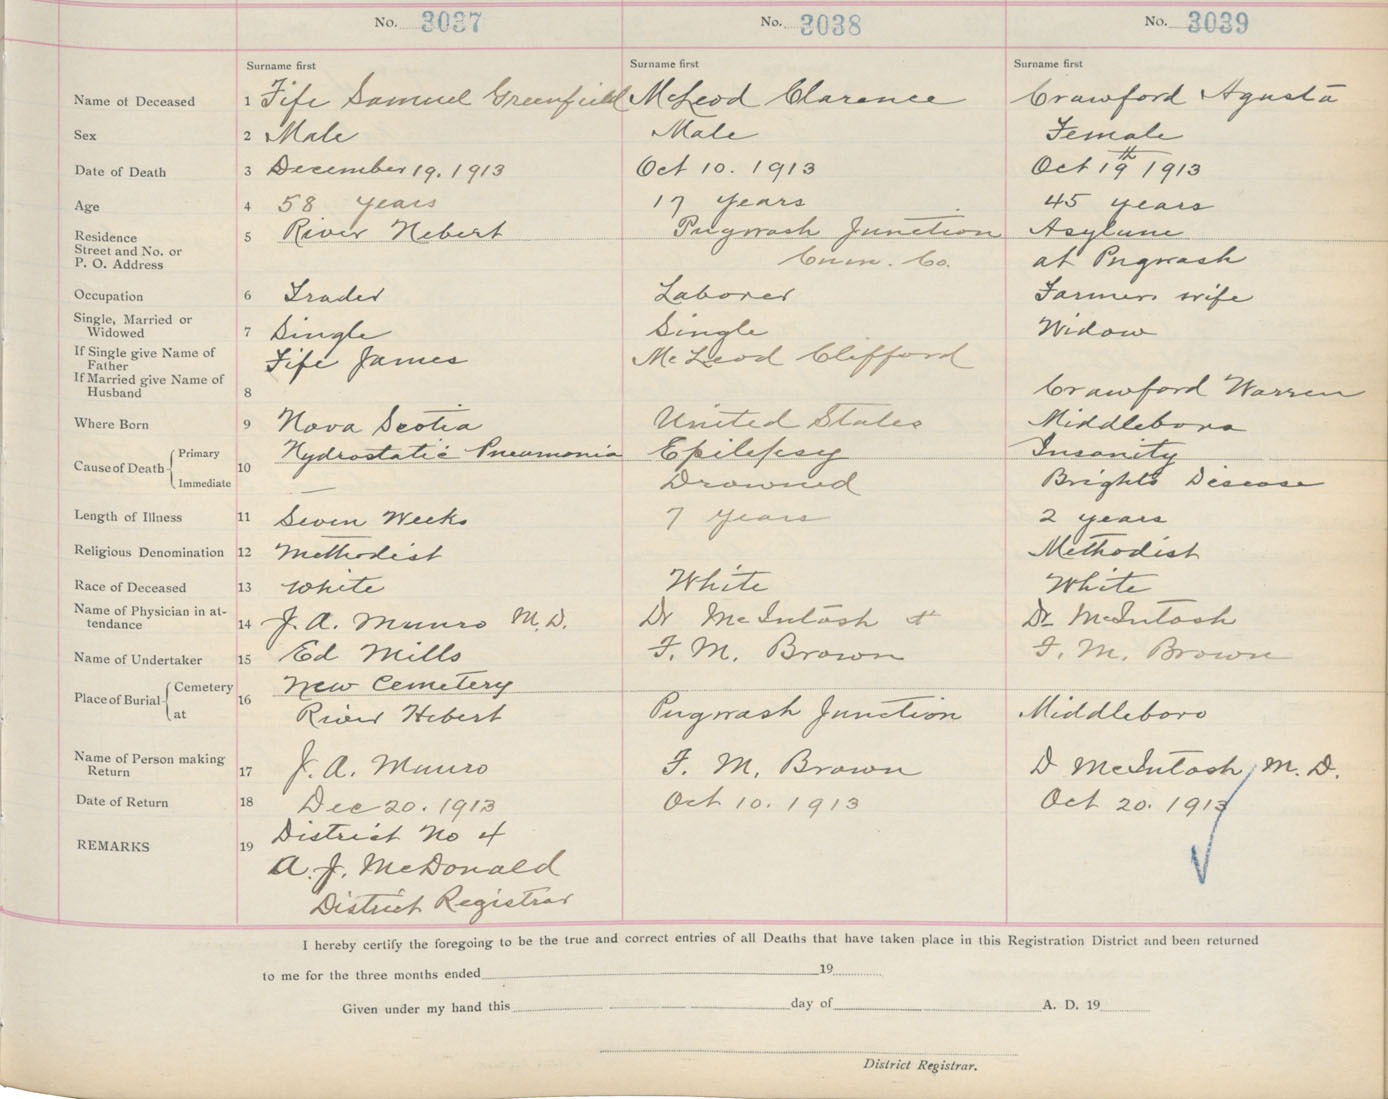 No. 3037 No. 3038 No. 3039
Surname first Surname first Surname first
Name of Deceased 1 Fife Samuel Greenfield McLeod Clarence Crawford Agusta
Sex 2 Male Male Female
Date of Death 3 December 19. 1913 Oct 10. 1913 Oct 19th 1913
Age 4 58 years 17 years 45 years
Residence 5 River Hebert Pugwash Junction Asylum
Street and No. or
P. O. Address Cum. Co. at Pugwash
Occupation 6 Trader Laborer Farmers wife
Single, Married or
Widowed 7 Single Single Widow
If Single give Name of
Father Fife James McLeod Clifford
If Married give Name of
Husband 8 Crawford Warren
Where Born 9 Nova Scotia United States Middleboro
Cause of Death Primary 10 Hydrostatic Pneumonia Epilepsy Insanity
Immediate — Drowned Brights Disease
Length of Illness 11 Seven Weeks 7 years 2 years
Religious Denomination 12 Methodist Methodist
Race of Deceased 13 White White White
Name of Physician in at-
tendance 14 J. A. Munro M. D. Dr McIntosh Dr McIntosh
Name of Undertaker 15 Ed Mills F. M. Brown F. M. Brown
Place of Burial Cemetery 16 New Cemetery
at River Hebert Pugwash Junction Middleboro
Name of Person making
Return 17 J. A. Munro F. M. Brown D McIntosh M. D.
Date of Return 18 Dec 20. 1913 Oct 10. 1913 Oct 20. 1913
REMARKS 19 District No 4
A. J. McDonald
District Registrar
I hereby certify the foregoing to be the true and correct entries of all Deaths that have taken place in this Registration District and been returned
to me for the three months ended 19
Given under my hand this day of A. D. 19
District Registrar.